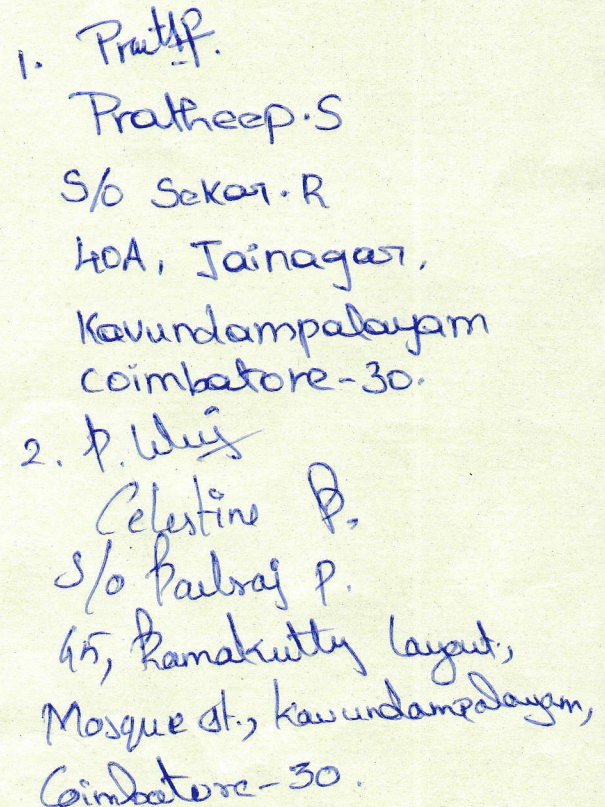 1.
Pratheep.S
S/o Sekar.R
40A, Jainagar,
Kavundampalayam
Coimbatore-30.
2. P.
Celestine P.
S/o Paulraj P.
45, Ramakutty layout,
Mosque st., Kavundampalayam,
Coimbatore-30.